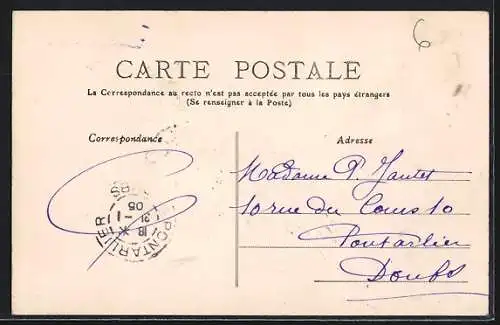 6
CARTE POSTALE
La Correspondance au recto n'est pas acceptée par tous les pays étrangers
(Se renseigner à la Poste)
Correspondance
Adresse
Madame P. Jantet
10 rue du Cours 10
Pontarlier
Doubs
PONTARLIER
18
31 - 1
05